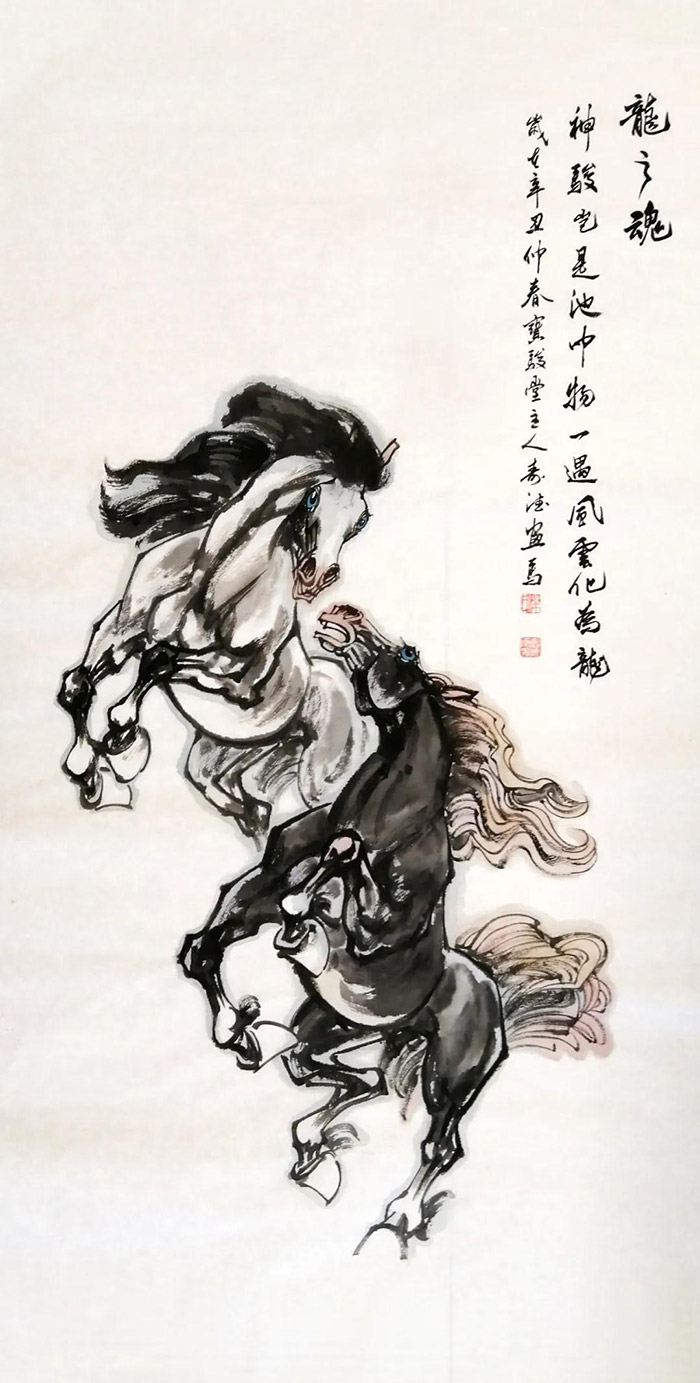 龍之魂
神駿岂是池中物一遇風雲化為龍
歲在辛丑仲春寶駿堂主人壽德畫馬